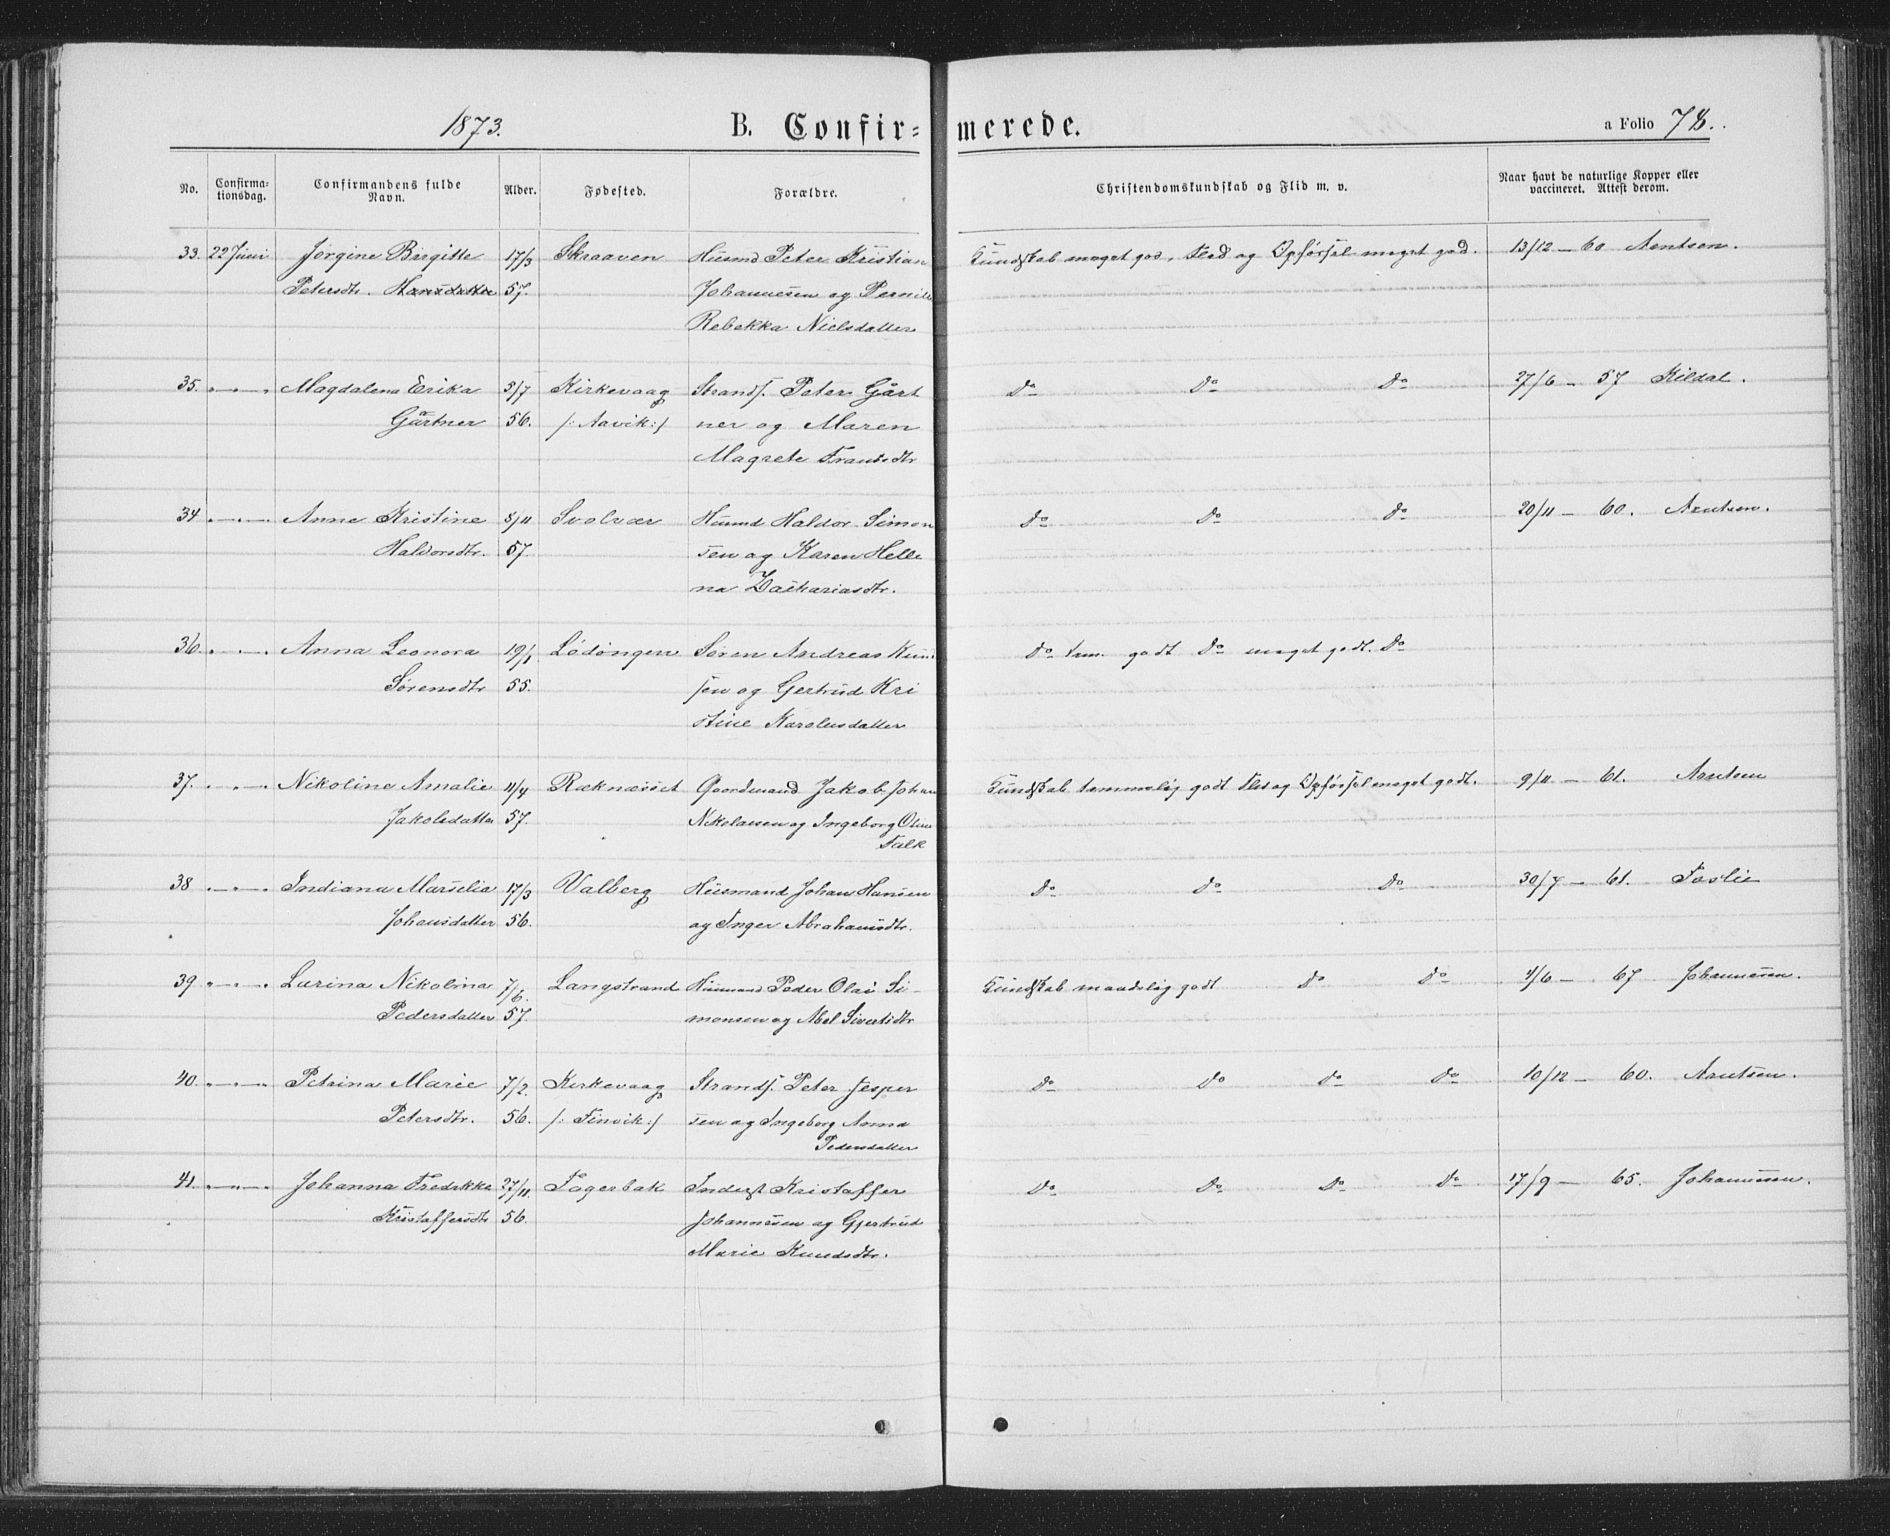 1873. B. Confir= merede. a Folio 78.
No. Confirma= tionsdag. Confirmandens fulde Navn. Alder. Fødested. Forældre. Christendomskundskab og Flid m. v. Naar havt de naturlige Kopper eller vaccineret. Attest derom.
33. 22 Juni Jørgine Birgitte 17/3 Skraaven Husmd Peter Kristian Kundskab meget god, Flid og Opførsel meget god. 13/12 – 60 Arntsen.
Petersdtr. Hansdatter 57. Johannesen og Pernille
Rebekka Nielsdatter
35. " — " Magdalena Erika 5/7 Kirkevaag Strands. Peter Gärt Do Do Do 27/6 – 57 Kildal.
Gärtner 56. /: Aavik :/ ner og Maren
Magrete Frantsdtr
34 " — " Anne Kristine 5/11 Svolvær Husmd Haldor Simon Do Do Do 20/11 – 60. Arntsen.
Haldorsdtr. 57. sen og Karen Helle
na Zachariasdtr.
36. " — " Anna Leonora 19/1 Lødøngen Søren Andreas Do tem. godt Do meget godt. Do
Sørensdtr 55. sen og Gertrud Kri
stine Karolusdatter
37. " — " Nikoline Amalie 11/4 Raknæsset Gaardmand Jakob Johan Kundskab temmelig godt Flid og Opførsel meget godt. 9/11 – 61. Arntsen
Jakobsdatter 57. Nikolaisen og Ingeborg Oline
Falk
38 " — " Indiana Marselia 17/3 Valberg Husmand Johan Hansen Do Do Do 30/7 – 61. Foslie
Johansdatter 56. og Inger Abrahamsdtr.
39 " — " Lurina Nikolina 7/6 Langstrand Husmand Peder Olai Si- Kundskab maadelig godt Do Do 4/6 – 67 Johannesen.
Pedersdatter 57. monsen og Abel Sivertsdtr
40. " — " Petrina Marie 7/2. Kirkevaag Strands. Peter Jesper Do Do Do Do 10/12 – 60. Arntsen.
Petersdtr. 56. /: Finvik :/ sen og Ingeborg Anna
Pedersdatter
41. " — " Johanna Fredrikke 27/11. Fagerbak Inderst Kristaffer Do Do Do Do 17/9 – 65. Johannesen.
Kristaffersdtr 56. Johannesen og Gjertrud
Marie Knudsdtr.